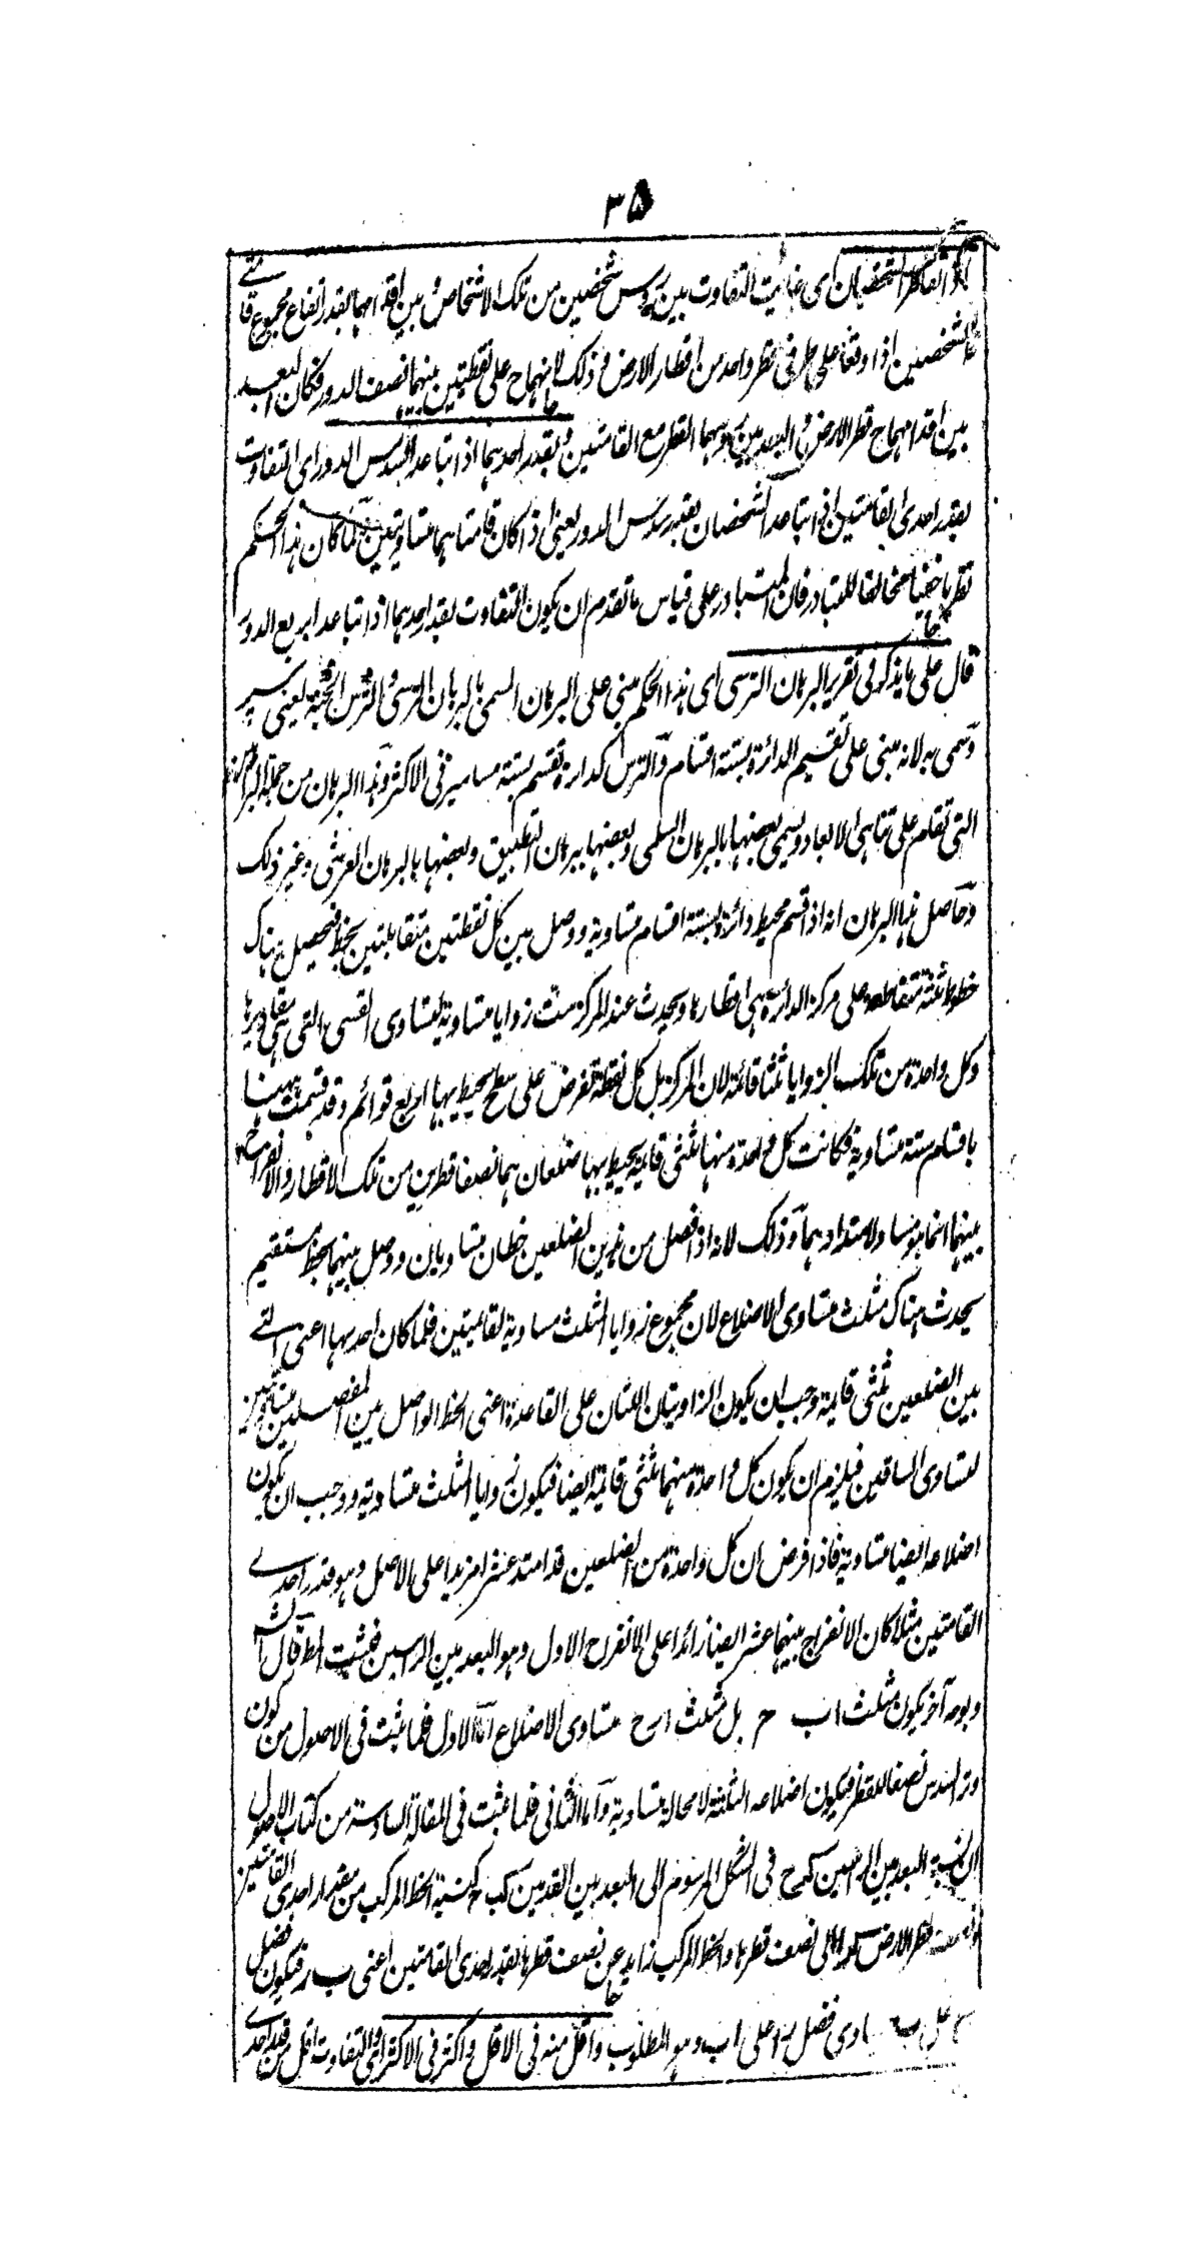 ٣٥
اذا تقاطر الشخصان اى غايت التفاوت بين رؤس شخصين من تلك الاشخاص و بين اقدامها بقدر ارتفاع مجموع قامتے
الشخصين اذا وقعا على طرفى قطر واحد من اقطار الارض و ذلك لانهما ح على نقطتين بينهما نصف الدور فكان البعد
بين اقدامهما ح قطر الارض و البعد بين رؤسهما القطر مع القامتين و بقدر احدهما اذا تباعدا بسدس الدور اى التفاوت
بقدر احدى القامتين اذا تباعد الشخصان بقدر سدس الدور يعنى اذا كان قامتاهما متساويتين و لما كان هذا الحكم
نظريا خفيا مخالفا للمتبادر فان المتبادر على قياس ما تقدم ان يكون التفاوت بقدر احدهما اذا تباعدا بربع الدور
قال على ما يذكر فى تقرير البرهان الترسى اى هذا الحكم مبنى على البرهان المسمى بالبرهان الترسى و الترس الجنة يعنى سپر
و سمى به لانه مبنى على تقسيم الدائرة بستة اقسام و الترس كدائرة تقسم بستة مسامير فى الاكثر و هذا البرهان من جملة البراهين
التى تقام على تناهى الابعاد و يسمى بعضها بالبرهان السلمى و بعضها ببرهان التطبيق و بعضها بالبرهان العرشى و غير ذلك
و حاصل هذا البرهان انه اذا قسم محيط دائرة بستة اقسام متساوية و وصل بين كل نقطتين متقابلتين بخط فيحصل هناك
خطوط ثلثة متقاطعة على مركز الدائرة هى اقطارها و يحدث عند المركز ست زوايا متساوية لتساوى القسى التى هى مقاديرها
و كل واحدة من تلك الزوايا ثلثا قائمة لان المركز بل كل نقطة تفرض على سطح يحيط بها اربع قوائم و قد قسمت ههنا
باقسام ستة متساوية فكانت كل واحدة منها ثلثى قائمة يحيط بها ضلعان هما نصفا قطرين من تلك الاقطار و الانفراج
بينهما انما هو مساو لامتدادهما و ذلك لانه اذا فصل من هذين الضلعين خطان متساويان و وصل بينهما بخط مستقيم
يحدث هناك مثلث متساوى الاضلاع لان مجموع زوايا المثلث مساوية لقائمتين فلما كان احدها اعنى التے
بين الضلعين ثلثى قائمة وجب ان يكون الزاويتان اللتان على القاعدة اعنى الخط الواصل بين المفصلين متساويتين
لتساوى الساقين فيلزم ان يكون كل واحدة منهما ثلثى قائمة ايضا فيكون زوايا المثلث متساوية و وجب ان يكون
اضلاعه ايضا متساوية فاذا فرض ان كل واحدة من الضلعين قد امتد عشرا مزيدا على الاصل و هو قدر احدے
القامتين مثلا كان الانفراج بينهما عشر ايضا زائدا على الانفراج الاول و هو البعد بين الراسين فثبت المط قال
و بوجه آخر يكون مثلث ا ب ح بل مثلث ا ح متساوى الاضلاع اما الاول فلما ثبت فى الاصول من كون
وتر السدس نصفا للقطر فيكون اضلاعه الثلثة لا محالة متساوية و اما الثانى فلما ثبت فى المقالة السادسة من كتاب الاصول
ان نسبة البعد بين الراسين فى الشكل المرسوم الى البعد بين القدمين كنسبة الخط المركب من مقدار احدى القامتين
قطر الارض الى نصف قطرها و الخط المركب زايد عن نصف قطرها بقدر احدى القامتين اعنى ب فيكون فضل
على اوى فضل على ا ب و هو المطلوب و اقل منه فى الاقل و اكثر فى الاكثر اى و التفاوت اقل من قدر احدے